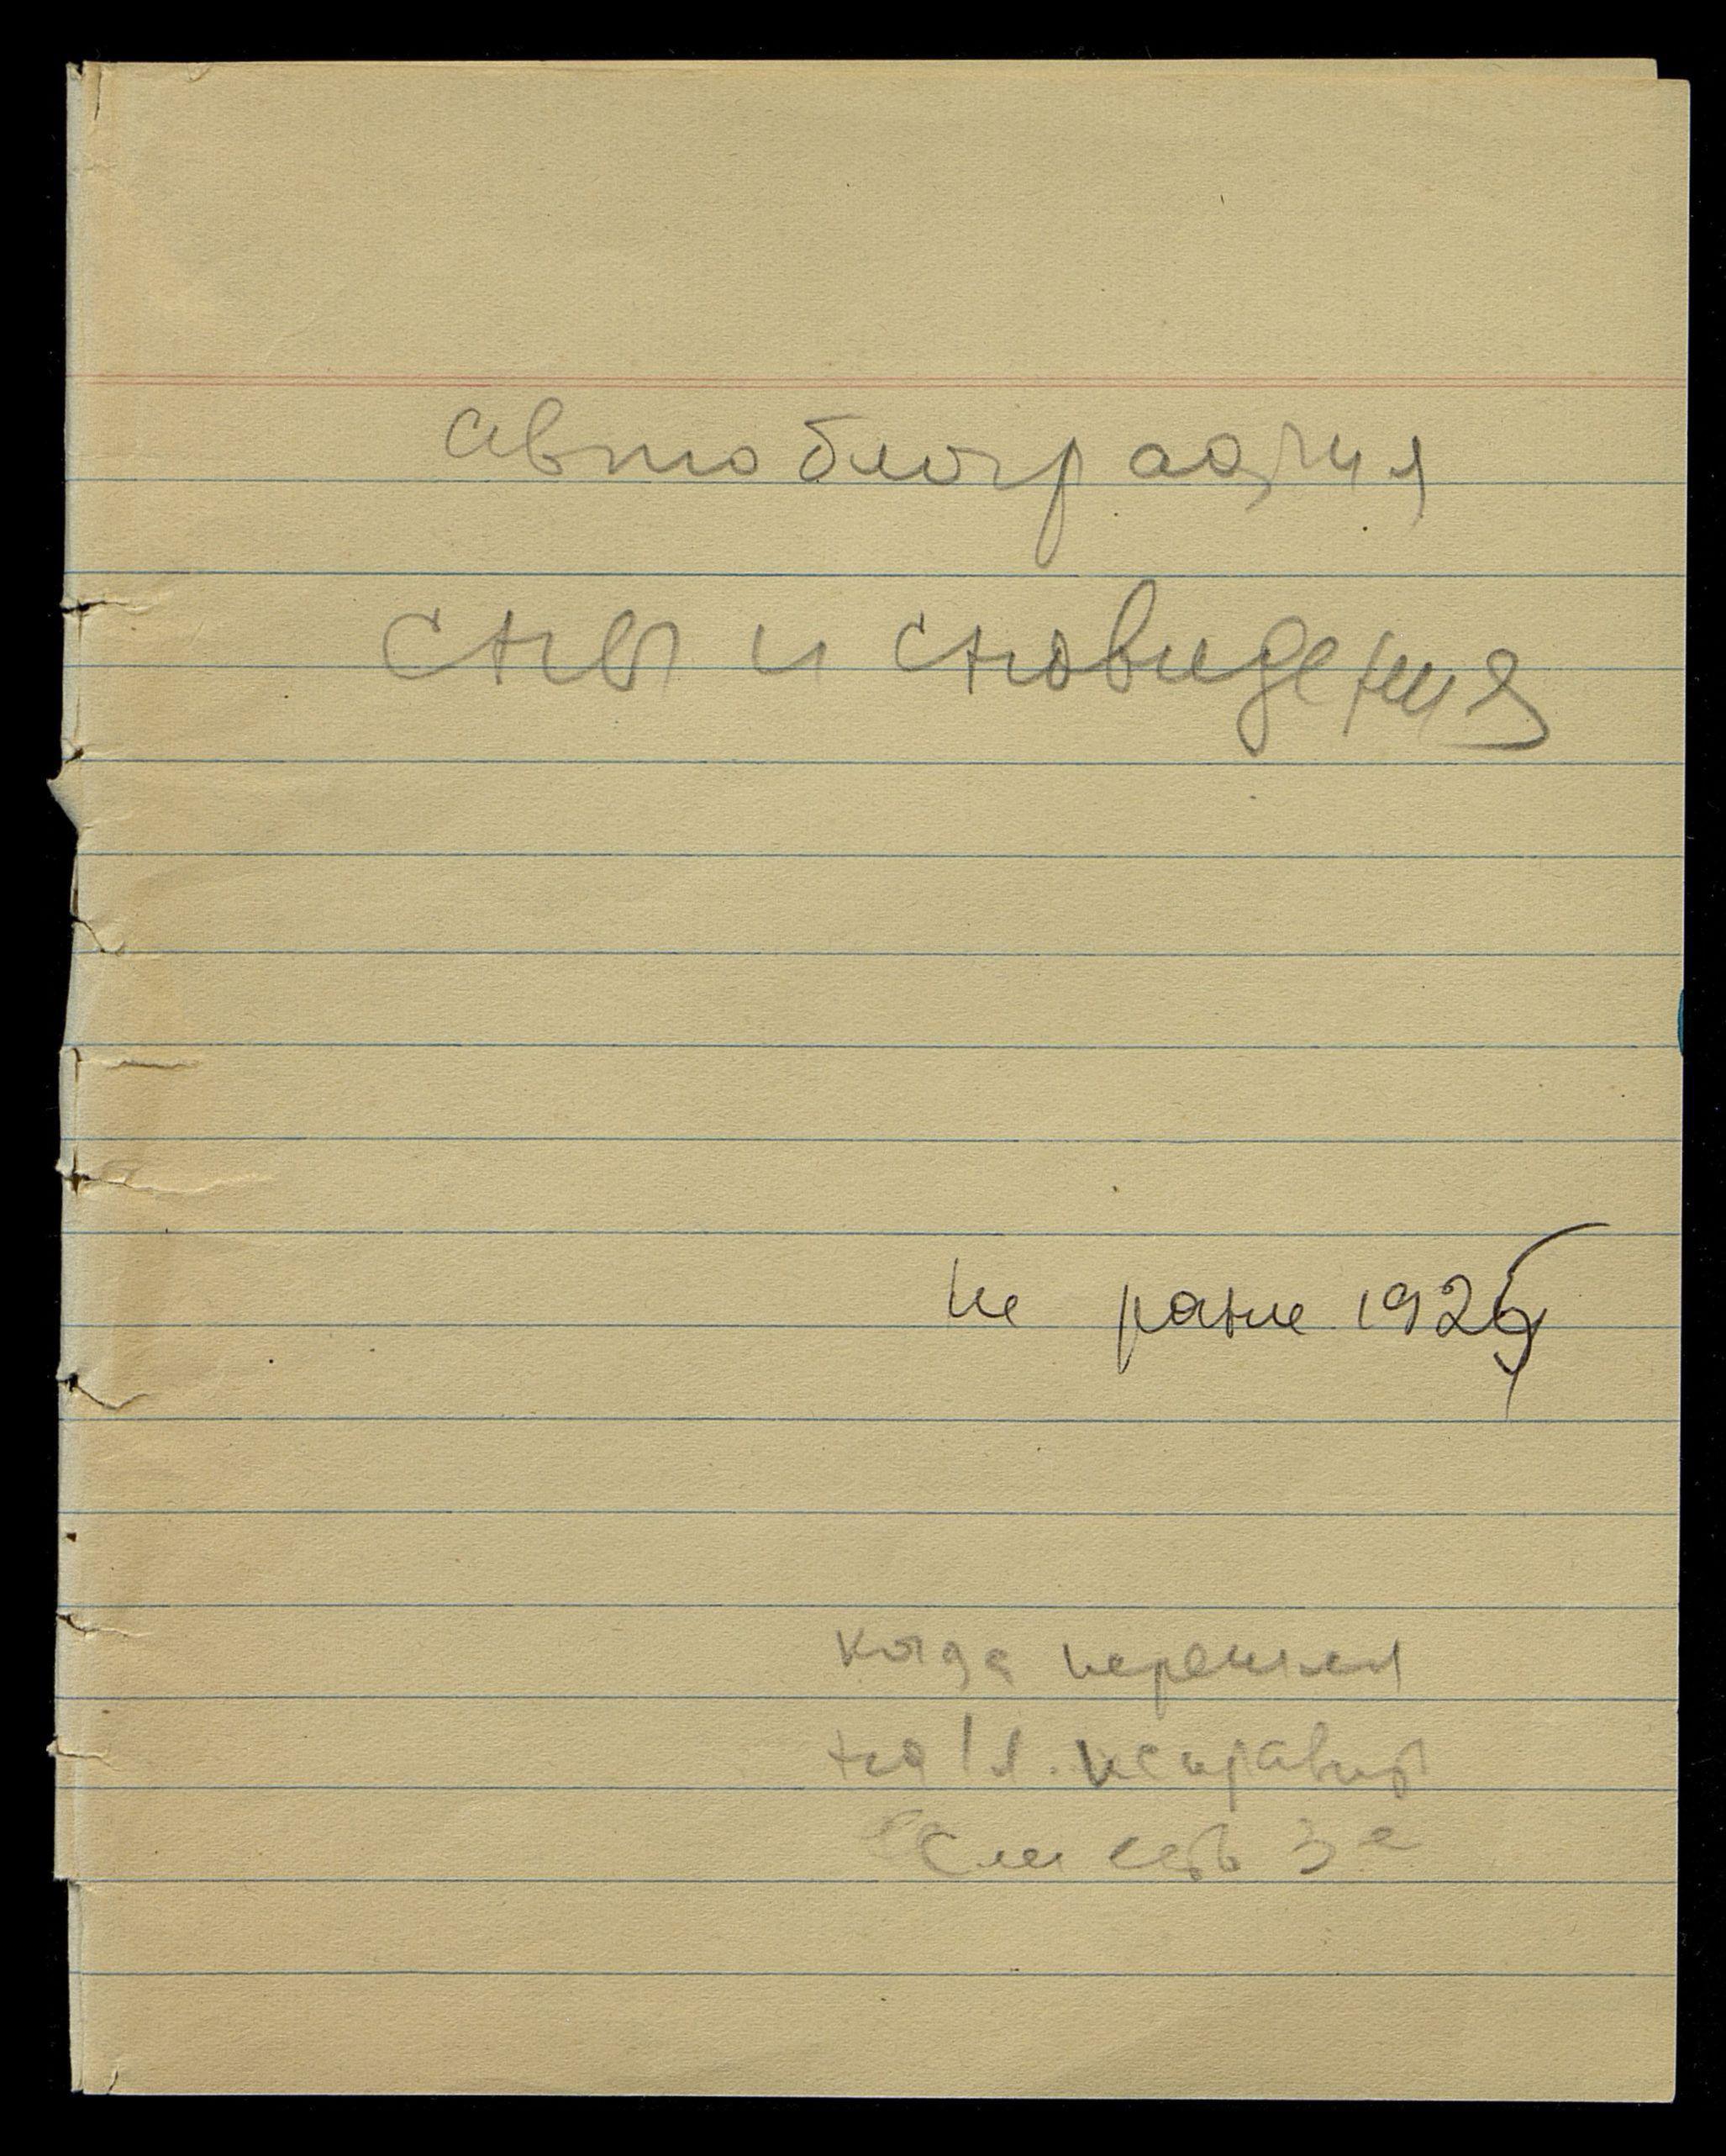 автобиография
сны и сновидения
не ранее 1925
когда перешел
на 1 л. исправить
если есть 3е